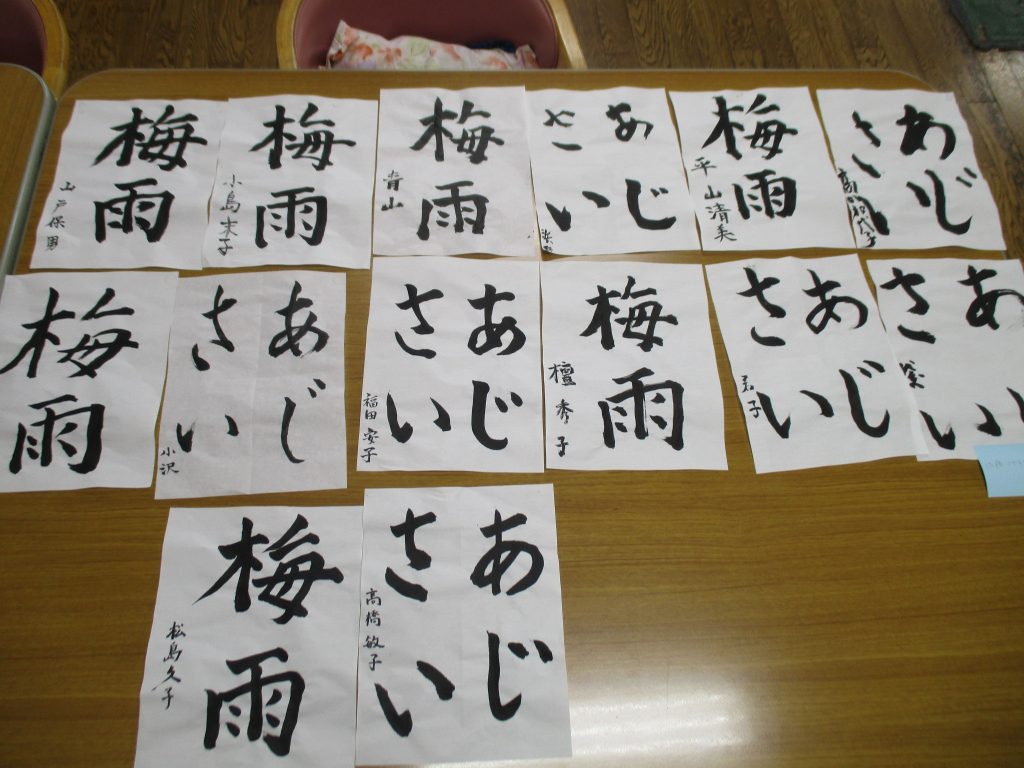 梅雨
山戸保男
梅雨
小島末子
梅雨
青山
あじ
さい
梅雨
平山清美
あじ
さい
梅雨
あじ
さい
小沢
あじ
さい
福田安子
梅雨
檀秀子
あじ
さい
あじ
さい
梅雨
松島久子
あじ
さい
高橋敏子